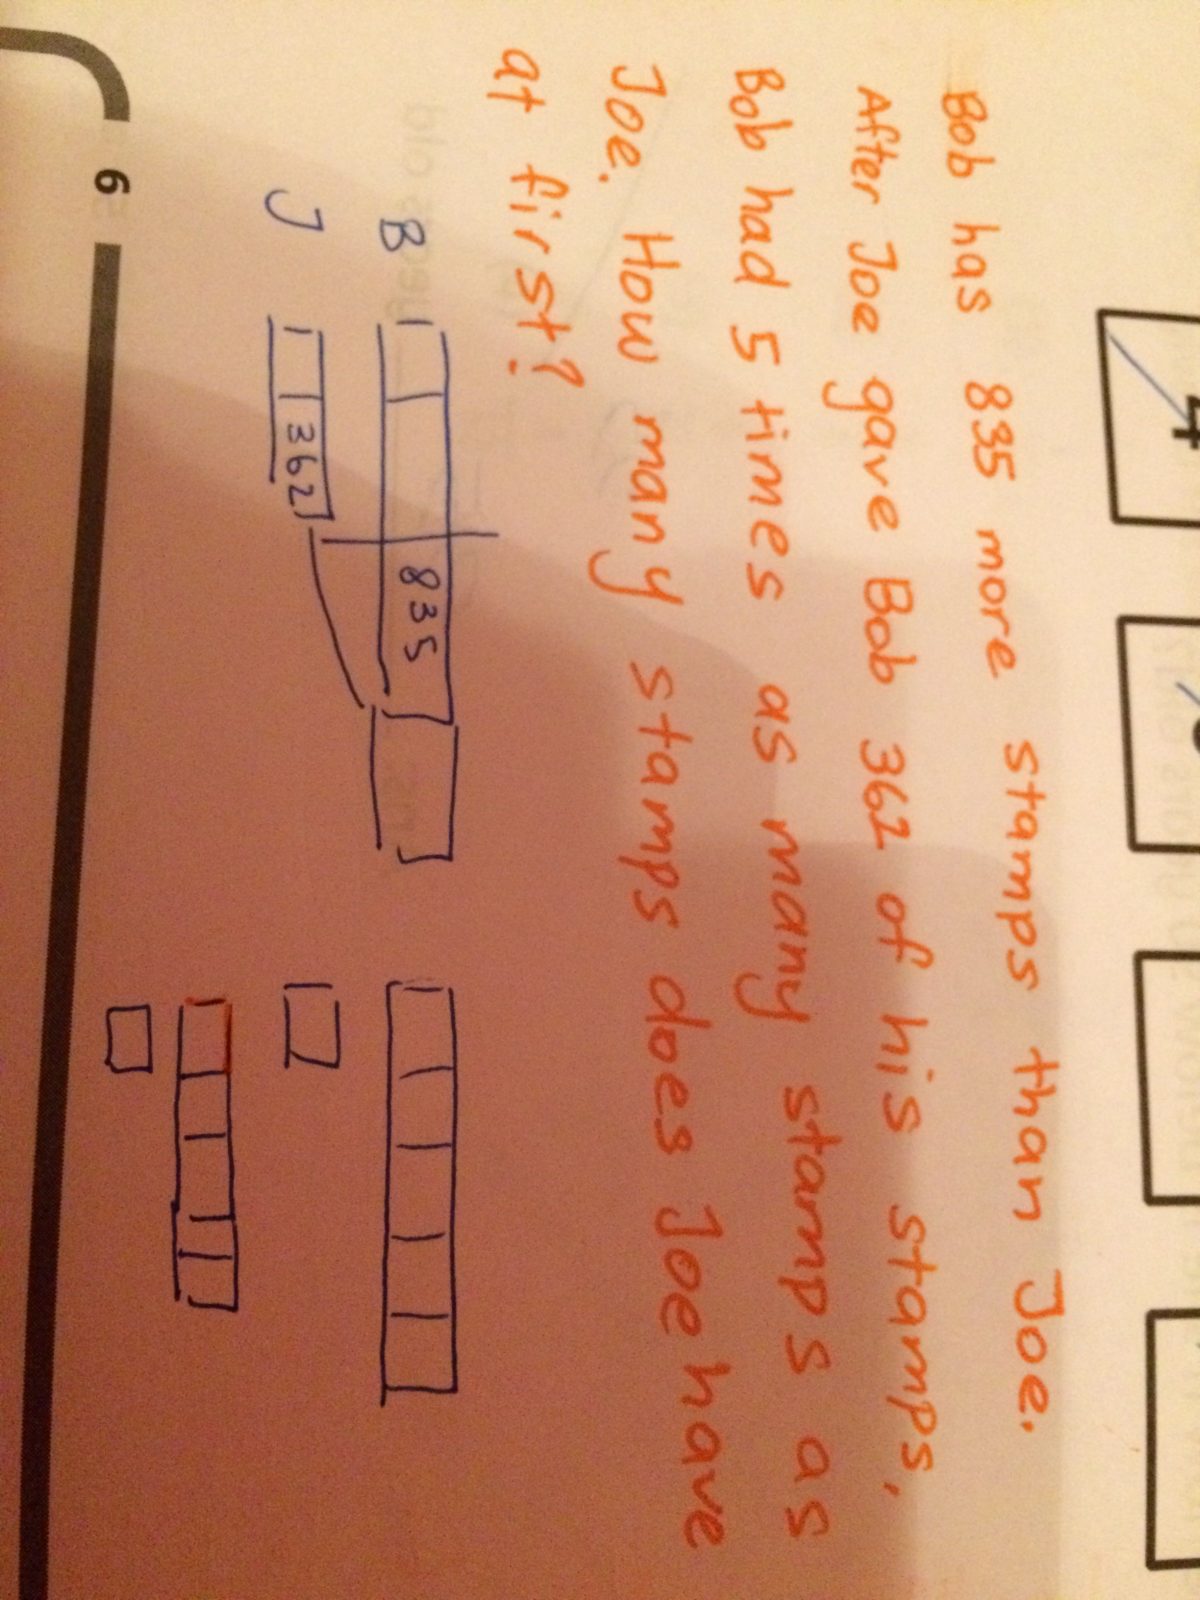 4
Bob has 835 more stamps than Joe.
After Joe gave Bob 362 of his stamps,
Bob had 5 times as many stamps as
Joe. How many stamps does Joe have
at first?
B 835
J 362
6